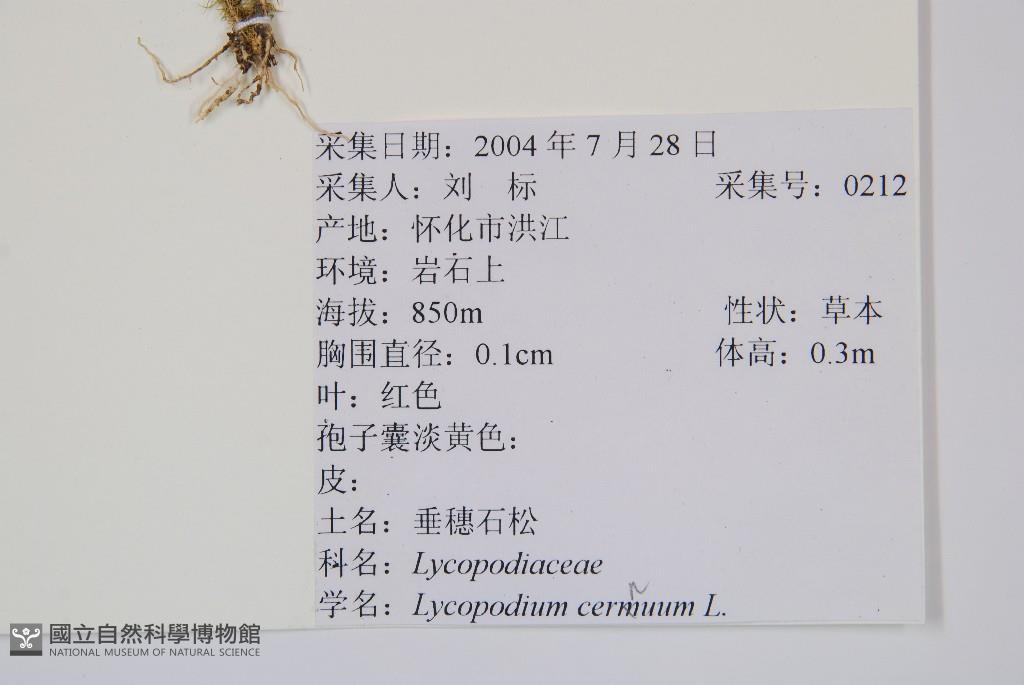 采集日期：2004 年 7 月 28 日
采集人：刘　标　采集号：0212
产地：怀化市洪江
环境：岩石上
海拔：850m　性状：草本
胸围直径：0.1cm　体高：0.3m
叶：红色
孢子囊淡黄色：
皮：
土名：垂穗石松
科名：Lycopodiaceae
n
学名：Lycopodium cermuum L.
國立自然科學博物館
NATIONAL MUSEUM OF NATURAL SCIENCE